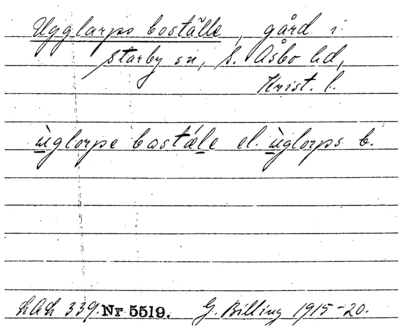 Ugglarps boställe, gård i
Starby sn, S. Åsbo hd,
Krist. l.
ùglorpe bostéle el. ùglorps b.
LAL 339. Nr 5519. G. Billing 1915-20.